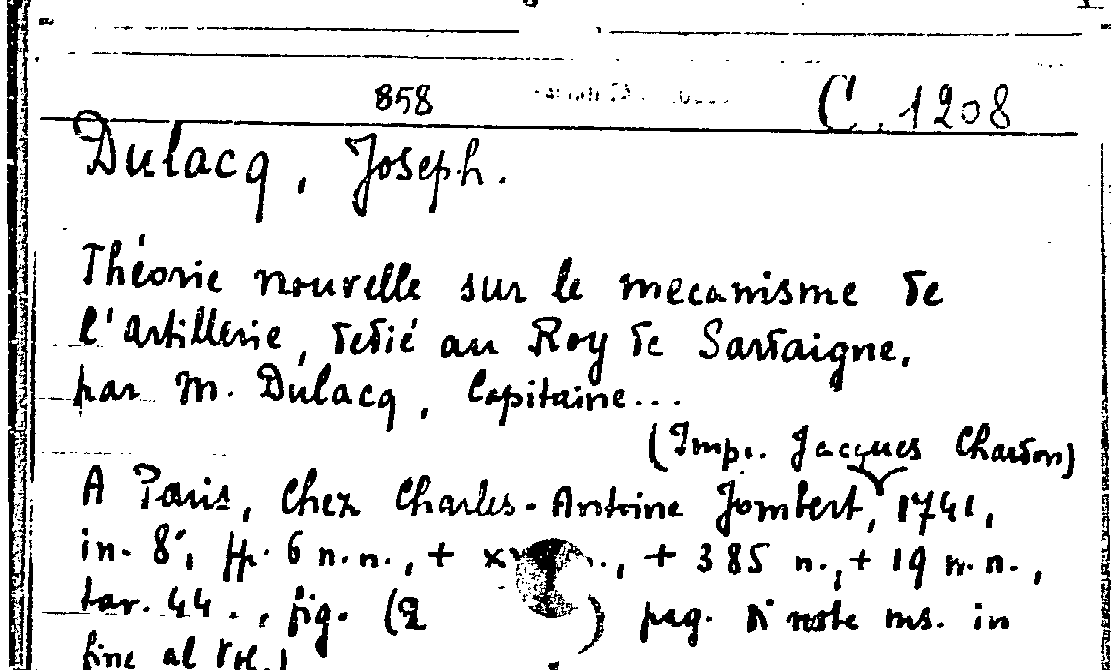 858 C. 1208
Dulacq, Joseph.
Théorie nouvelle sur le mecanisme de
l'artillerie, dedié au Roy de Sardaigne,
par M. Dulacq, Capitaine...
(Impr. Jacques Chardon)
A Paris, Chez Charles-Antoine Jombert, 1741,
in-8°, pp. 6 n.n., + + 385 n., + 19 n.n.,
tav. 44., fig. (2 pag. di note ms. in
fine al vol.)